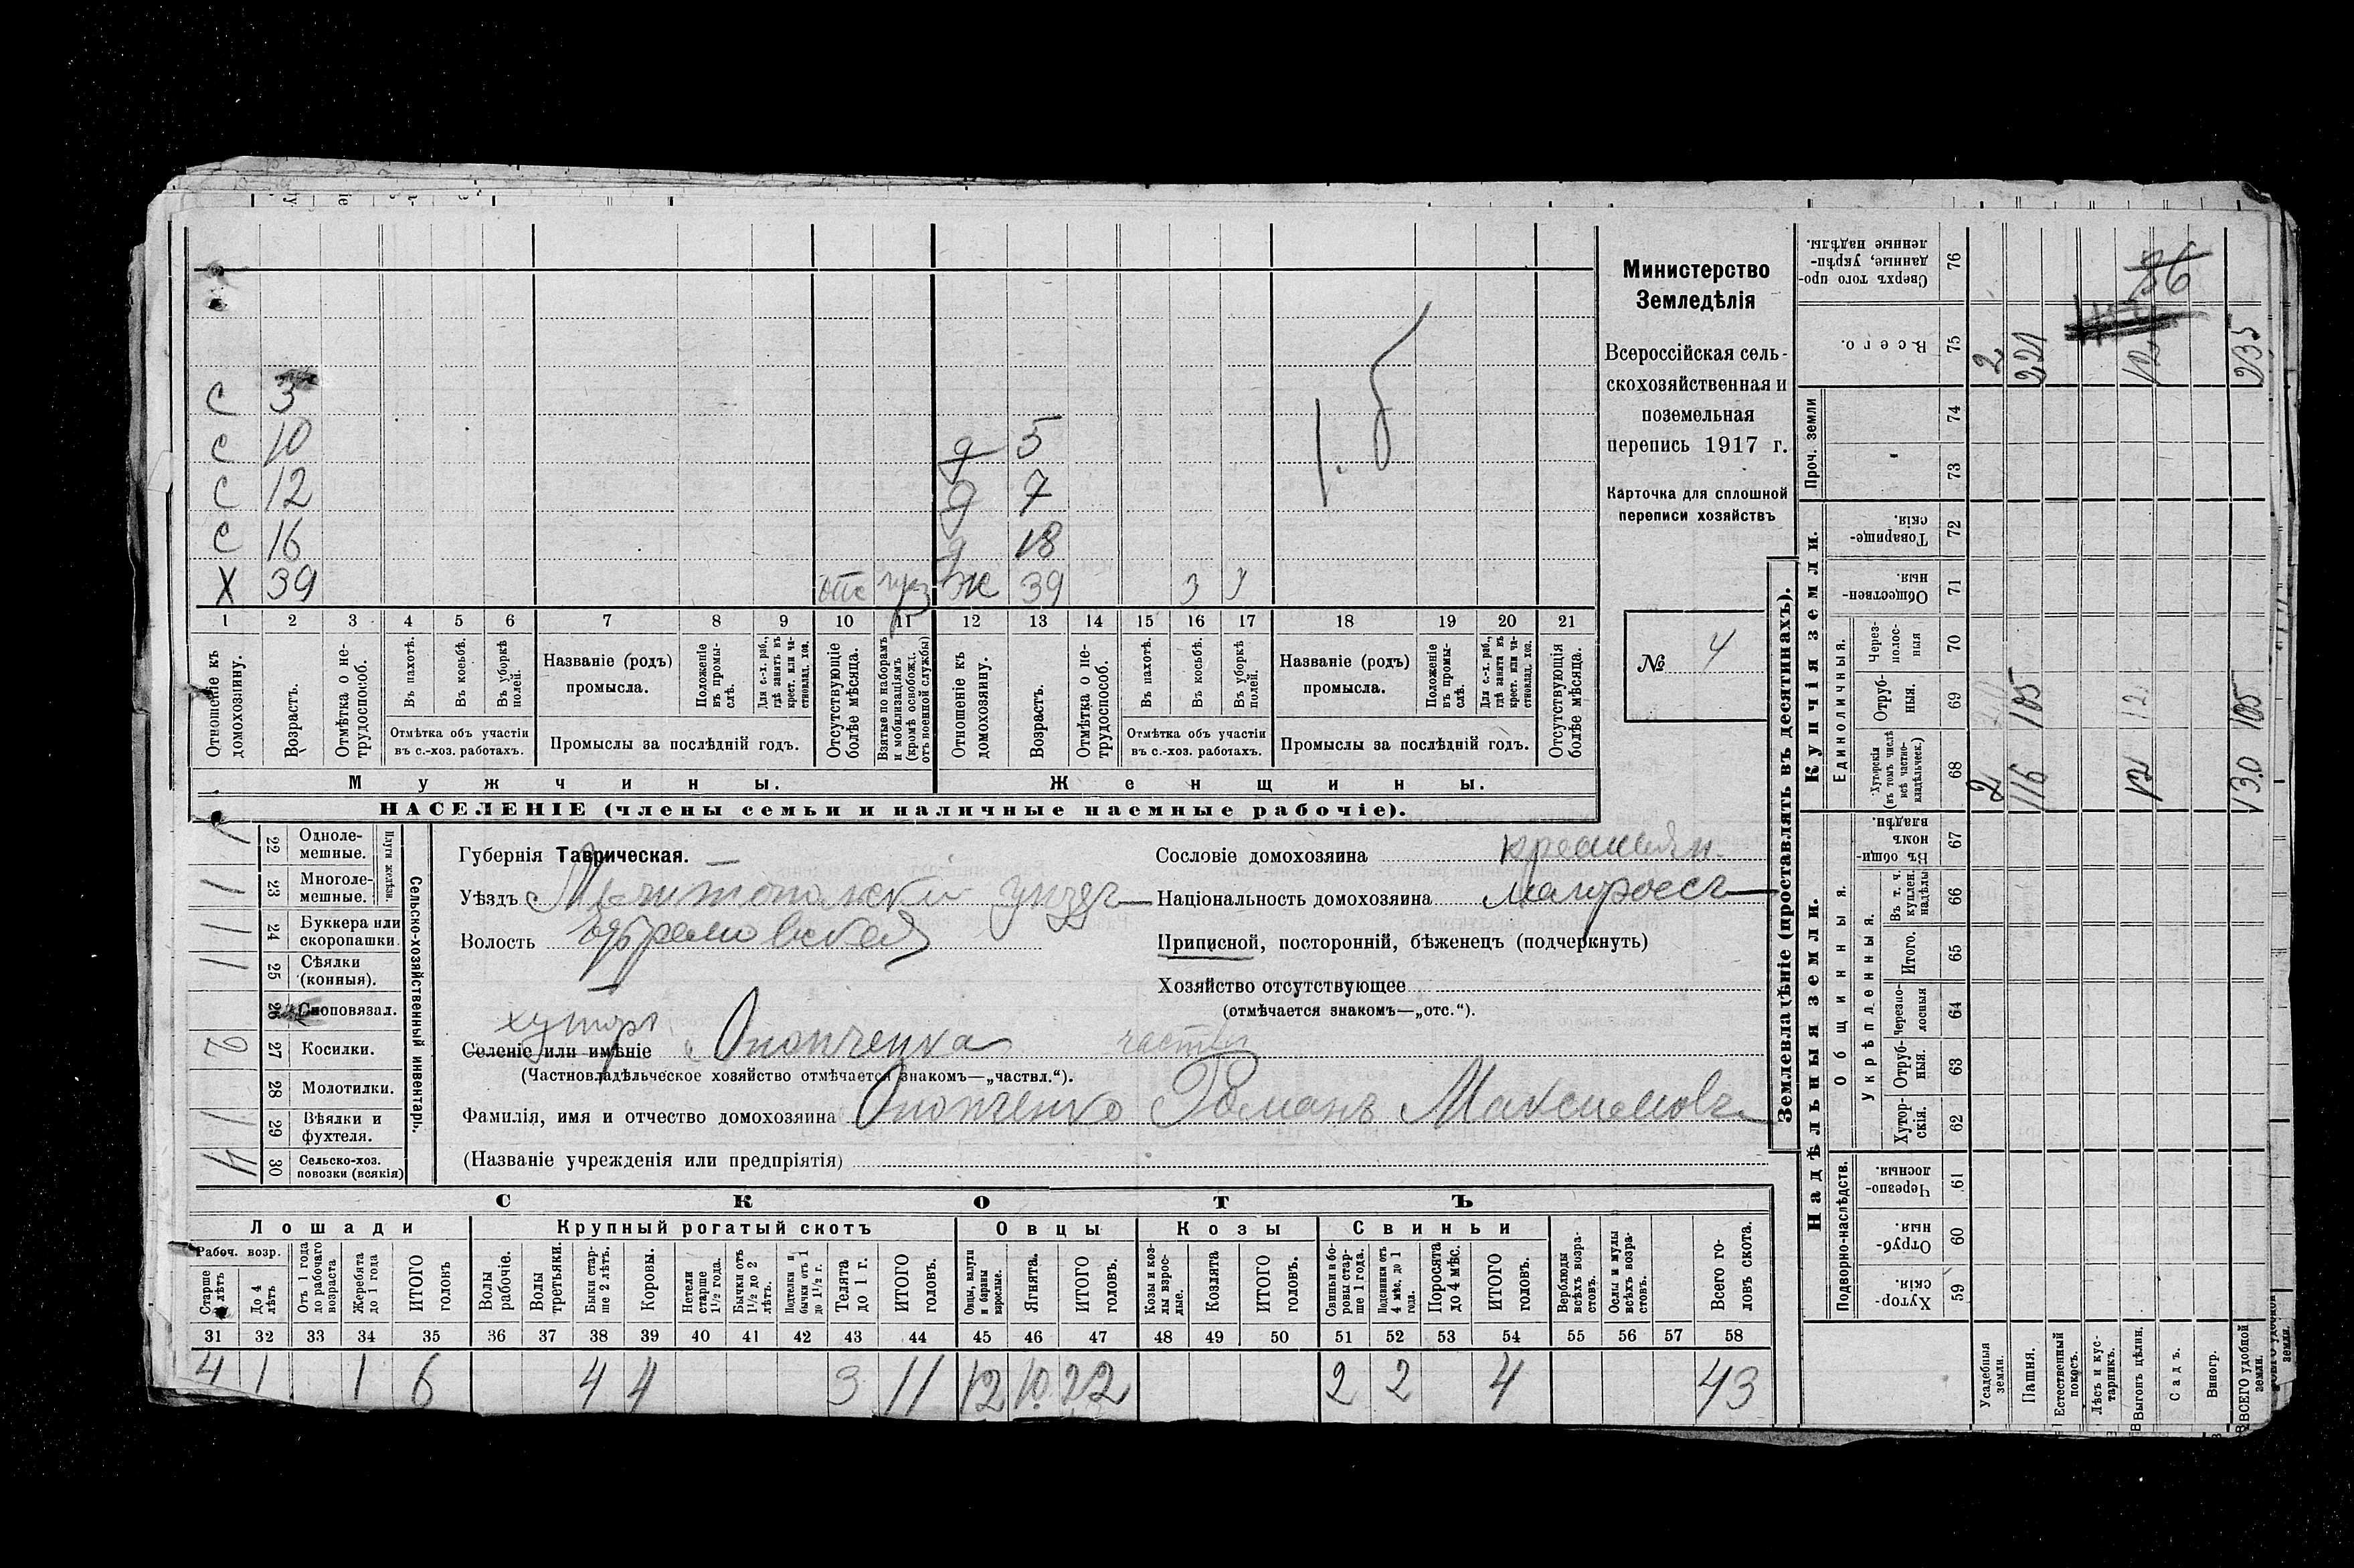 С 3
С 10 д 5
С 12 д 7
С 16 д 18
Х 39 отс Ж 39 3 У
1. б
1 2 3 4 5 6 7 8 9 10 11 12 13 14 15 16 17 18 19 20 21
Отношеніе къ домохозяину.
Возрастъ.
Отмѣтка о не-трудоспособ.
Въ пахотѣ.
Въ косьбѣ.
Въ уборкѣ полей.
Отмѣтка объ участіи
въ с.-хоз. работахъ.
Названіе (родъ)
промысла.
Положеніе въ промы-слѣ.
Для с.-х. раб., гдѣ занятъ въ крест. или ча-стновлад. хоз.
Промыслы за послѣдній годъ.
Отсутствующіе болѣе мѣсяца.
Взятые по наборамъ и мобилизаціямъ (кромѣ освобожд. отъ военной службы)
Отношеніе къ домохозяину.
Возрастъ.
Отмѣтка о не-трудоспособ.
Въ пахотѣ.
Въ косьбѣ.
Въ уборкѣ полей.
Отмѣтка объ участіи
въ с.-хоз. работахъ.
Названіе (родъ)
промысла.
Положеніе въ промы-слѣ.
Для с.-х. раб., гдѣ занята въ крест. или ча-стновлад. хоз.
Промыслы за послѣдній годъ.
Отсутствующія болѣе мѣсяца.
Мужчины. Женщины.
НАСЕЛЕНІЕ (члены семьи и наличные наемные рабочіе).
Министерство
Земледѣлія
Всероссійская сель-
скохозяйственная и
поземельная
перепись 1917 г.
Карточка для сплошной
переписи хозяйствъ
№ 4
Сельско-хозяйственный инвентарь.
Плуги желѣзн.
1 22 Одноле-мешные.
1 23 Многоле-мешные.
1 24 Буккера или скоропашки.
1 25 Сѣялки (конныя).
26 Сноповязал.
2 27 Косилки.
28 Молотилки.
1 29 Вѣялки и фухтеля.
4 30 Сельско-хоз. повозки (всякія)
Губернія Таврическая.
Уѣздъ Мелитопольскій уѣздъ
Волость Ефремовская
хуторъ
Селеніе или имѣніе Онопченка частвл
(Частновладѣльческое хозяйство отмѣчается знакомъ—„частвл.“).
Фамилія, имя и отчество домохозяина Онопченко Романъ Максимовъ
(Названіе учрежденія или предпріятія)
Сословіе домохозяина крестьян.
Національность домохозяина малороссъ
Приписной, посторонній, бѣженецъ (подчеркнуть)
Хозяйство отсутствующее
(отмѣчается знакомъ—„отс.“).
СКОТЪ
Лошади Крупный рогатый скотъ Овцы Козы Свиньи
Рабоч. возр.
Старше 4 лѣтъ
До 4 лѣтъ
Отъ 1 года до рабочаго возраста
Жеребята до 1 года
ИТОГО головъ
Волы рабочіе.
Волы третьяки.
Быки стар-ше 2 лѣтъ.
Коровы.
Нетели старше 1½ года.
Бычки отъ 1½ до 2 лѣтъ.
Подтелки и бычки отъ 1 до 1½ г.
Телята до 1 г.
ИТОГО головъ.
Овцы, валухи и бараны взрослые.
Ягнята.
ИТОГО головъ.
Козы и коз-лы взрос-лые.
Козлята
ИТОГО головъ.
Свиньи и бо-ровы стар-ше 1 года.
Подсвинки отъ 4 мѣс. до 1 года.
Поросята до 4 мѣс.
ИТОГО головъ.
Верблюды всѣхъ возра-стовъ.
Ослы и мулы всѣхъ возра-стовъ.
Всего го-ловъ скота.
31 32 33 34 35 36 37 38 39 40 41 42 43 44 45 46 47 48 49 50 51 52 53 54 55 56 57 58
4 1 1 6 4 4 3 11 12 10 22 2 2 4 43
Землевладѣніе (проставлять въ десятинахъ).
Надѣльныя земли. Купчія земли. Проч. земли
Подворно-наслѣдств. Общинныя. Укрѣпленныя. Единоличныя.
Хутор-скія. 59
Отруб-ныя. 60
Черезпо-лосныя 61
Хутор-скія. 62
Отруб-ныя. 63
Черезпо-лосныя 64
Итого. 65
Въ т. ч. куплен. надѣлы 66
Въ общи-номъ владѣн. 67
Хуторскія (въ томъ числѣ всѣ частно-владѣльческ.) 68
Отруб-ныя. 69
Через-полос-ныя 70
Обществен-ныя. 71
Товарище-скія. 72
73
74
Всего. 75
Сверхъ того про-данные, укрѣп-ленные надѣлы. 76
Усадебныя земли. 2 2
Пашня. 116 105 221
Естественный покосъ.
Лѣсъ и кус-тарникъ.
Выгонъ цѣлин. 12 12
Садъ.
Виногр.
ВСЕГО удобной земли. 130 105 235
36